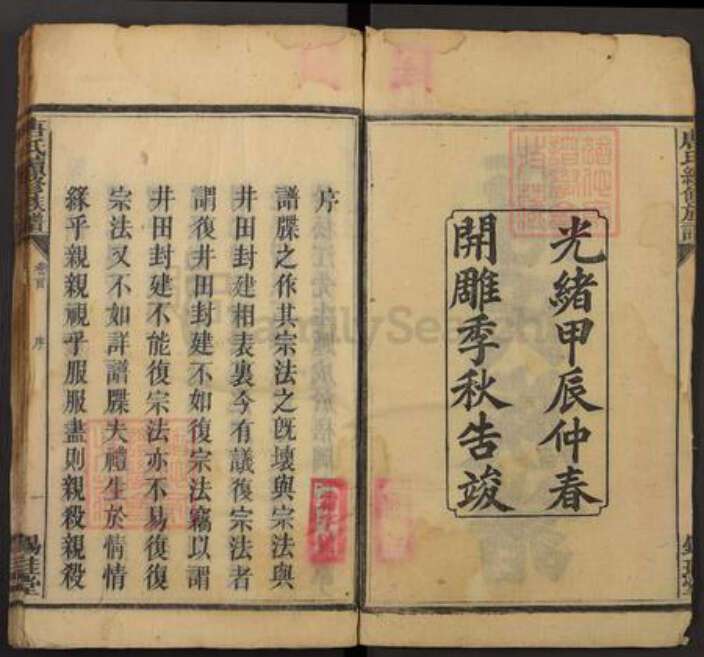 光緒甲辰仲春
開雕季秋告竣
序
譜牒之作其宗法之既壞與宗法與
井田封建相表裏今有議復宗法者
謂復井田封建不如復宗法竊以謂
井田封建不能復宗法亦不易復復
宗法又不如詳譜牒夫禮生於情情
緣乎親親視乎服服盡則親殺親殺
唐氏續修族譜
卷首
序
唐氏續修族譜
FamilySearch